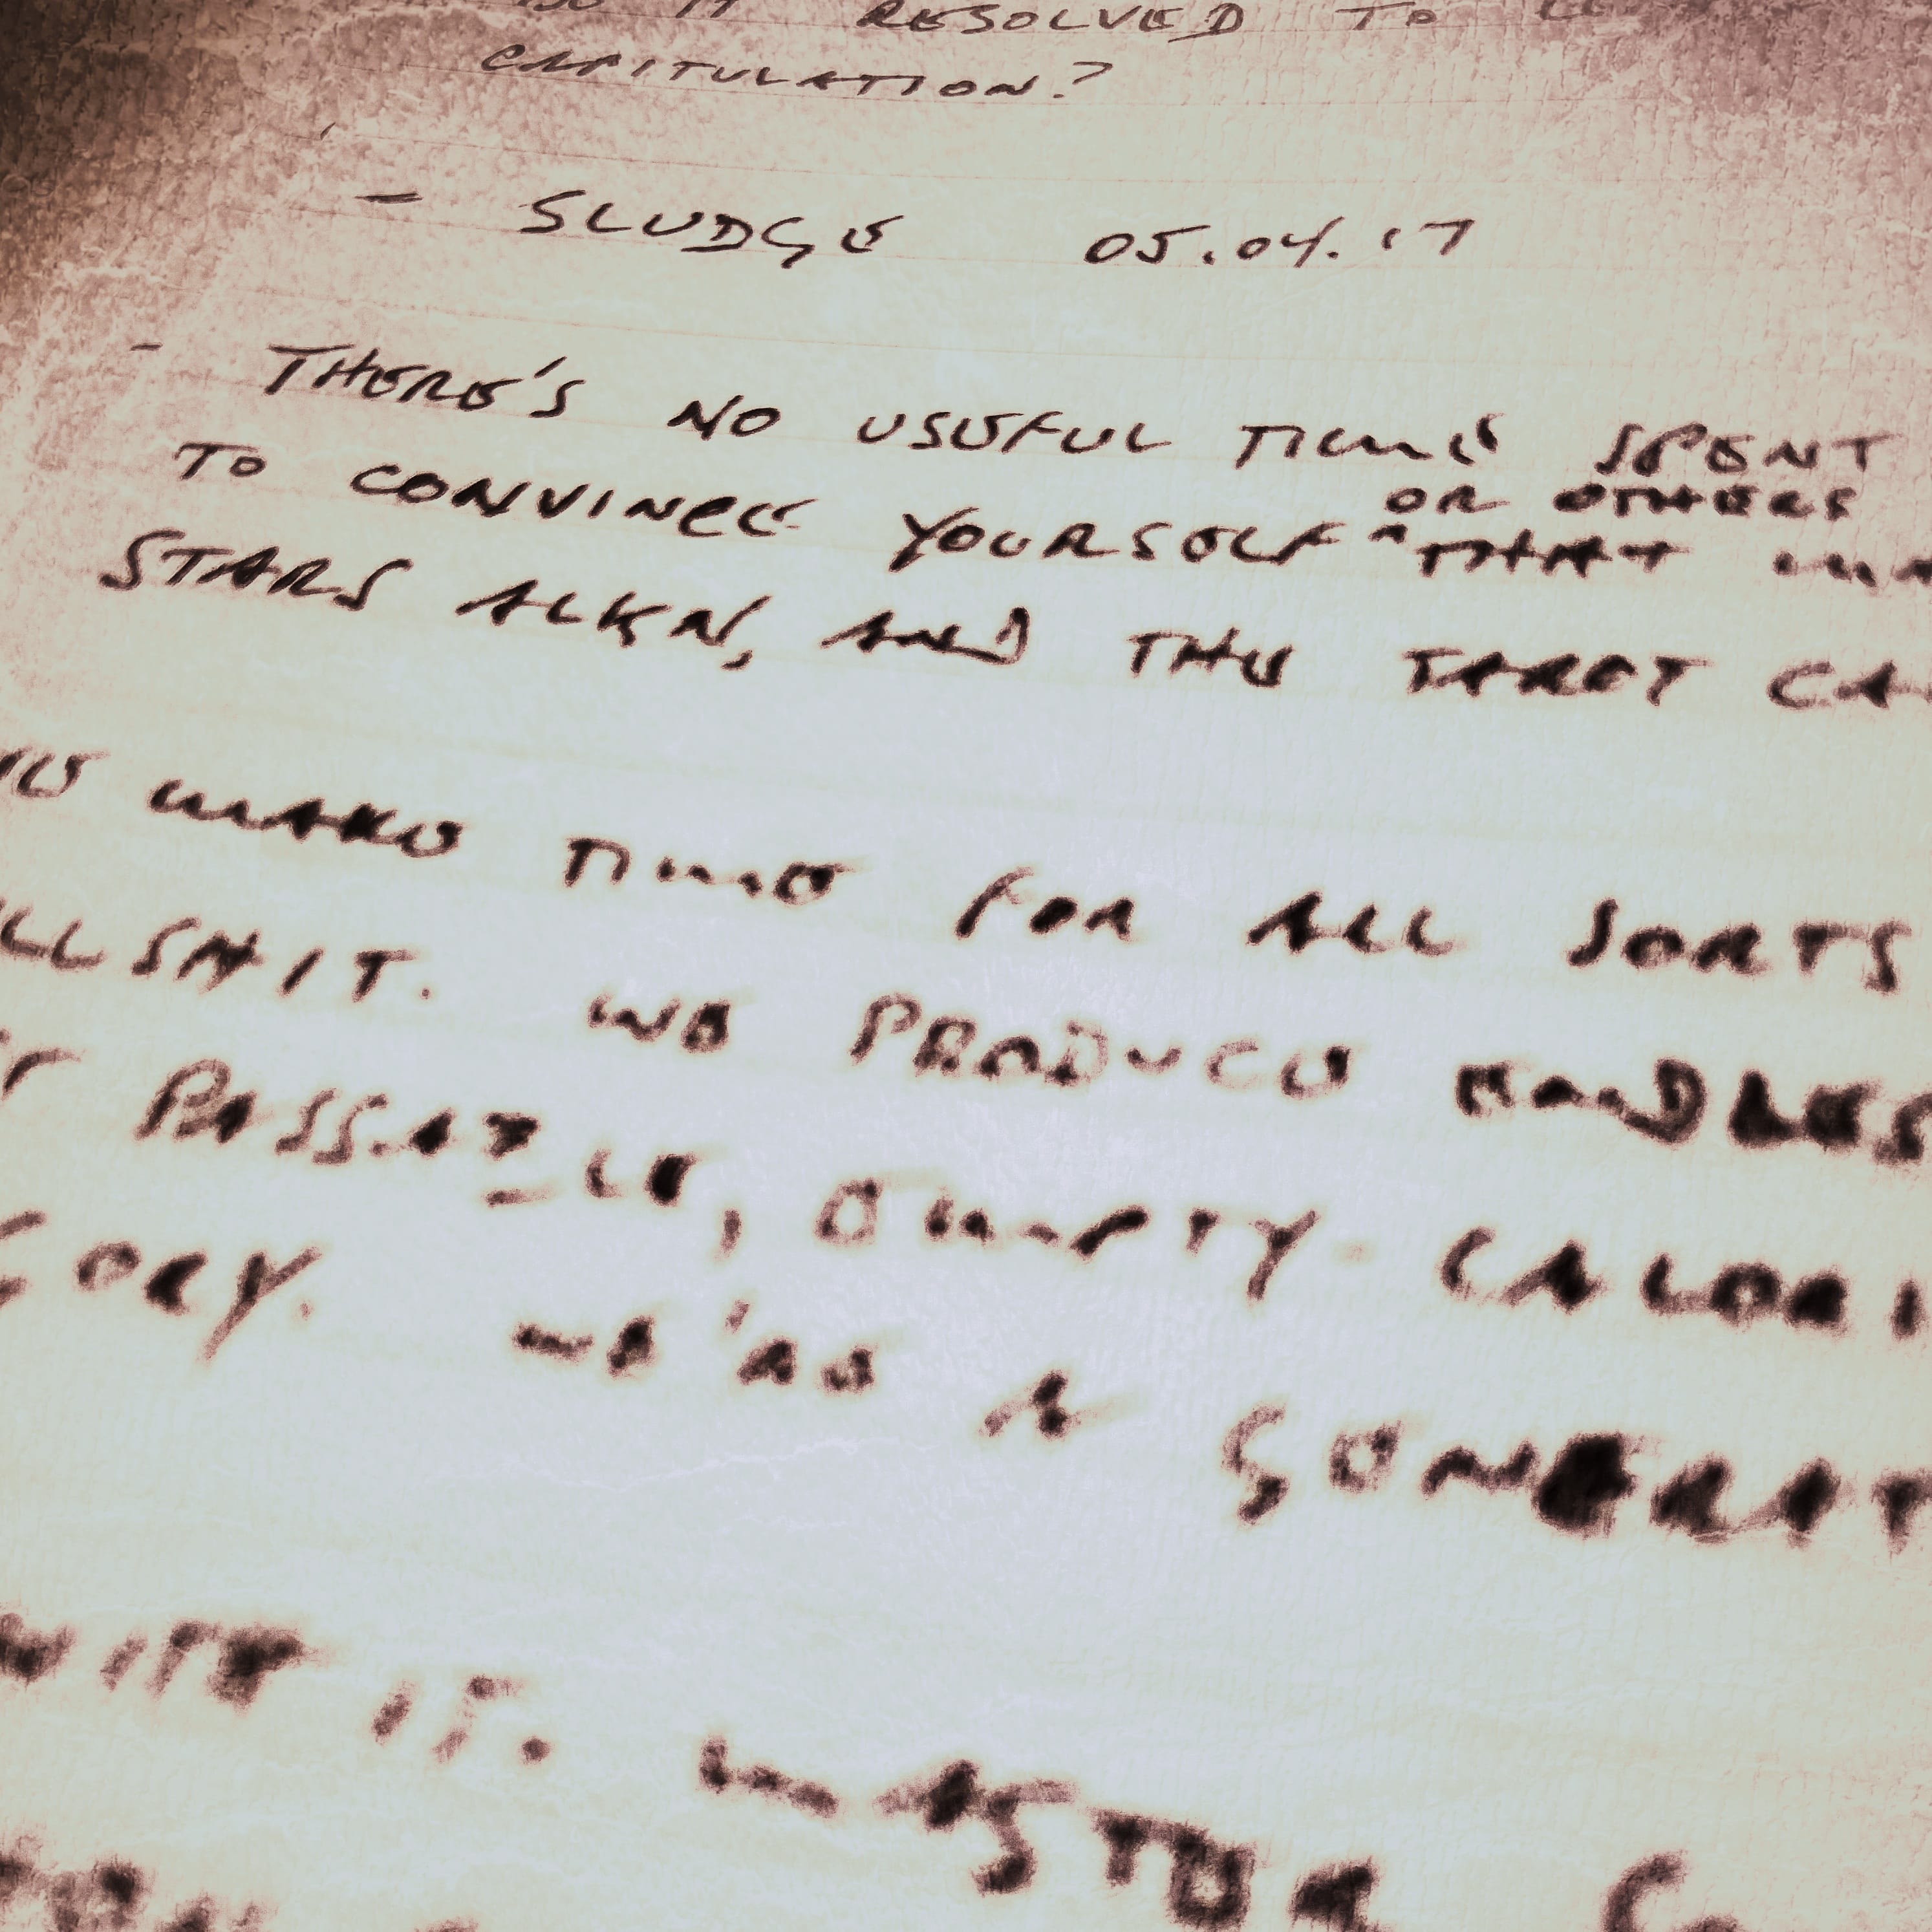 IT RESOLVED TO
CAPITULATION?
- SLUDGE 05.04.17
- THERE'S NO USEFUL TIME SPENT
OR OTHERS
TO CONVINCE YOURSELF ^ THAT
STARS ALIGN, AND THE TAROT CA
MAKE TIME FOR ALL SORTS
LLSHIT. WE PRODUCE ENDLES
PASSABLE, EMPTY-CALORI
GORY. WE'RE A GENERAT
WITH IT.